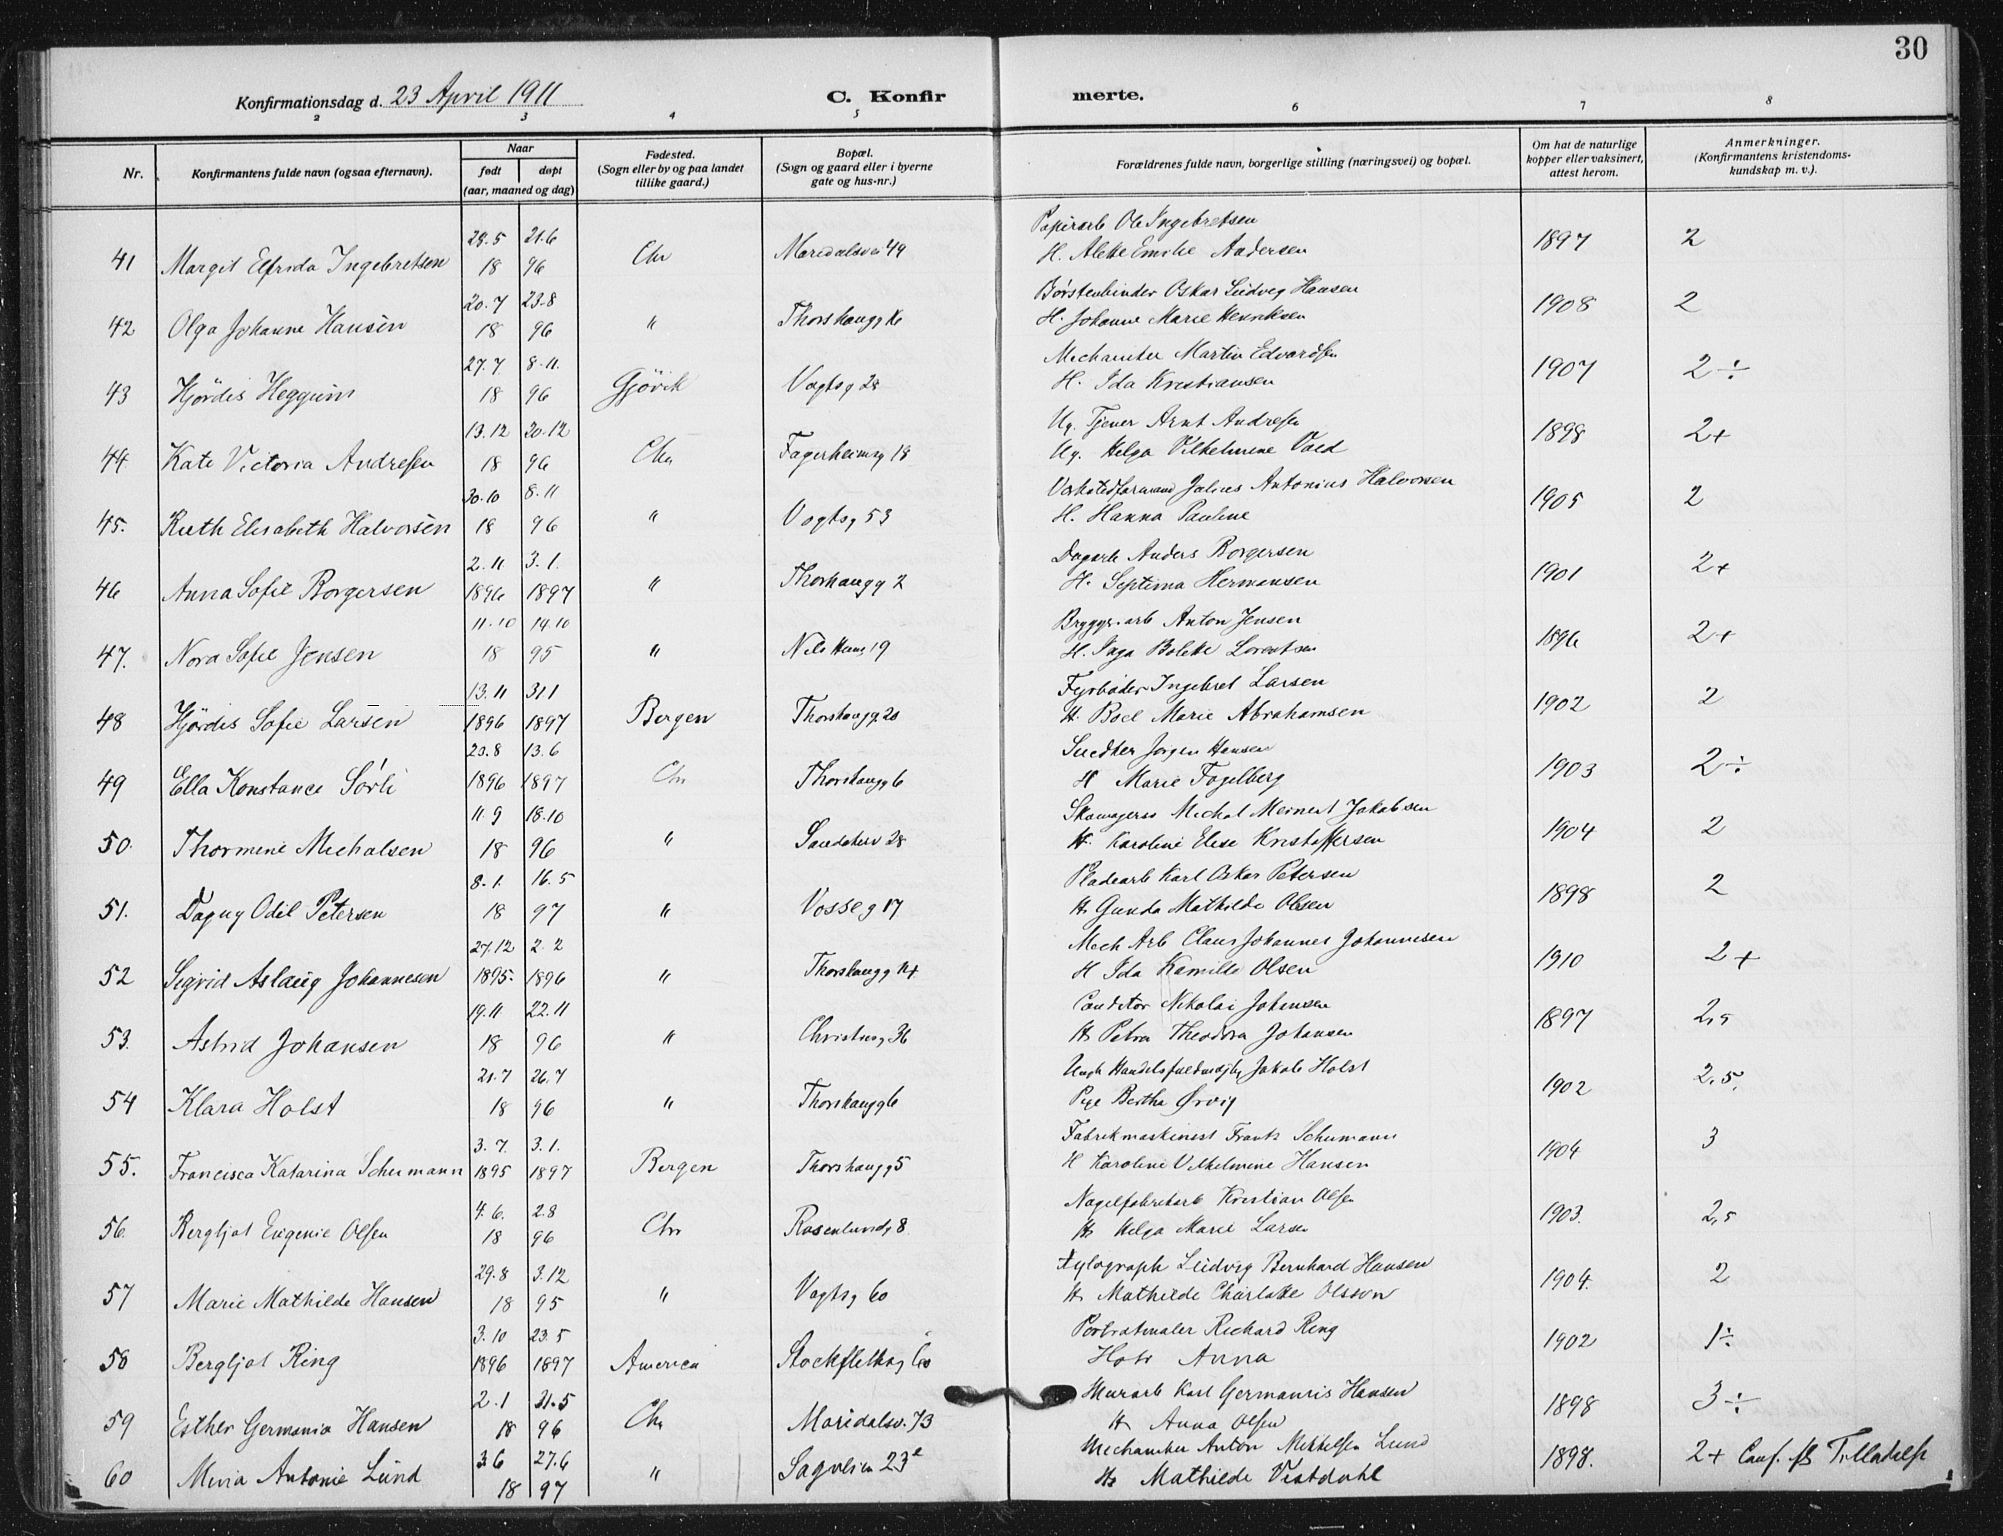 30
Konfirmationsdag d. 23 April 1911 C. Konfir merte.
2 3 4 5 6 7 8
Nr. Konfirmantens fulde navn (ogsaa efternavn). Naar født døpt (aar, maaned og dag) Fødested. (Sogn eller by og paa landet tillike gaard.) Bopæl. (Sogn og gaard eller i byerne gate og hus-nr.) Forældrenes fulde navn, borgerlige stilling (næringsvei) og bopæl. Om hat de naturlige kopper eller vaksinert, attest herom. Anmerkninger. (Konfirmantens kristendoms-kundskap m. v.).
28.5 21.6 Papirarb Ole Ingebretsen
41 Margit Elfrida Ingebretsen 18 96 Chr Maridalsvei 49 H. Alette Emilie Andersen 1897 2
20.7 23.8 Børstenbinder Oskar Ludvig Hansen
42 Olga Johanne Hansen 18 96 " Thorshaugg 16 H. Johanne Marie Henriksen 1908 2
27.7 8.11. Mechaniker Martin Edvardsen
43 Hjørdis Heggum 18 96 Gjövik Vogtsg 28 H. Ida Kristiansen 1907 2÷
13.12 20.12 Ug. Tjener Arnt Andresen
44 Kate Victoria Andresen 18 96 Chr Fagerheimsg 18 Ug. Helga Vilhelmine 1898 2+
30.10 8.11 Verkstedformand Julius Antonius Halvorsen
45. Ruth Elisabeth Halvorsen 18 96 " Vogtsg 53 H. Hanna Pauline 1905 2
2.11 3.1. Dagarb Anders Borgersen
46 Anna Sofie Borgersen 1896 1897 " Thorshaugg 2 H. Septima Hermansen 1901 2+
11.10 14.10 Bryggr.arb Anton Jensen
47. Nora Sofie Jensen 18 95 " Nils Huusg 19 H. Inga Bolette Lorentsen 1896 2+
13.11 31 1 Fyrbøder Ingebret Larsen
48 Hjördis Sofie Larsen 1896 1897 Bergen Thorshaugg 20 H. Boel Marie Abrahamsen 1902 2
20.8 13.6 Snedker Jørgen Hansen
49 Ella Konstance Sörli 1896 1897 Chr Thorshaugg 6 H Marie Fogelberg 1903 2÷
11.9 18.10 Skomagersv Michal Meinert Jakobsen
50. Thormine Michalsen 18 96 " 28 H. Karoline Elise Kristoffersen 1904 2
8.1. 16.5 Pladearb Karl Oskar Petersen
51. Dagny Odil Petersen 18 97 " Vosseg 17 H Gunda Mathilde Olsen 1898 2
27.12 2.2 Mech Arb Claus Johannes Johannesen
52 Sigrid Aslaug Johannesen 1895. 1896 " Thorshaugg 14 H Ida Kamilla Olsen 1910 2+
19.11 22.11 Conditor Nikolai Johansen
53. Astrid Johansen 18 96 " Christiesg 36 H Petra Theodora Johansen 1897 2,5
21.7 26.7 Ungk Handelsfuldmægtig Jakob Holst
54 Klara Holst 18 96 " Thorshaugg 6 Pige Bertha Ørvig 1902 2,5.
3.7. 3.1. Fabrikmaskinist Frantz Schumann
55. Francisca Katarina Schumann 1895 1897 Bergen Thorshaugg 5 H Karoline Vilhelmine Hansen 1904 3
4.6. 2.8 Nagelfabrikarb Kristian Olsen
56. Bergljot Eugenie Olsen 18 96 Chr Rosenlundg 8. H Helga Marie Larsen 1903. 2,5
29.8 3.12 Xylograph Ludvig Bernhard Hansen
57 Marie Mathilde Hansen 18 95 " Vogtsg 60 H Mathilde Charlotte Olsson 1904. 2
3.10 23.5 Portrætmaler Richard Ring
58 Bergljot Ring 1896 1897 America Stockflethsg 60 Hstr Anna 1902 1÷
2.1 31.5 Murarb Karl Germanius Hansen
59 Esther Germania Hansen 18 96 Chr Maridalsv. 73 H Anna Olsen 1898 3÷
3 6 27.6 Mechaniker Anton Mikkelsen Lund
60 Mina Antonie Lund 18 97 " Sagveien 23 e H Mathilde Vestdahl 1898. 2+ Conf. Tilladelse